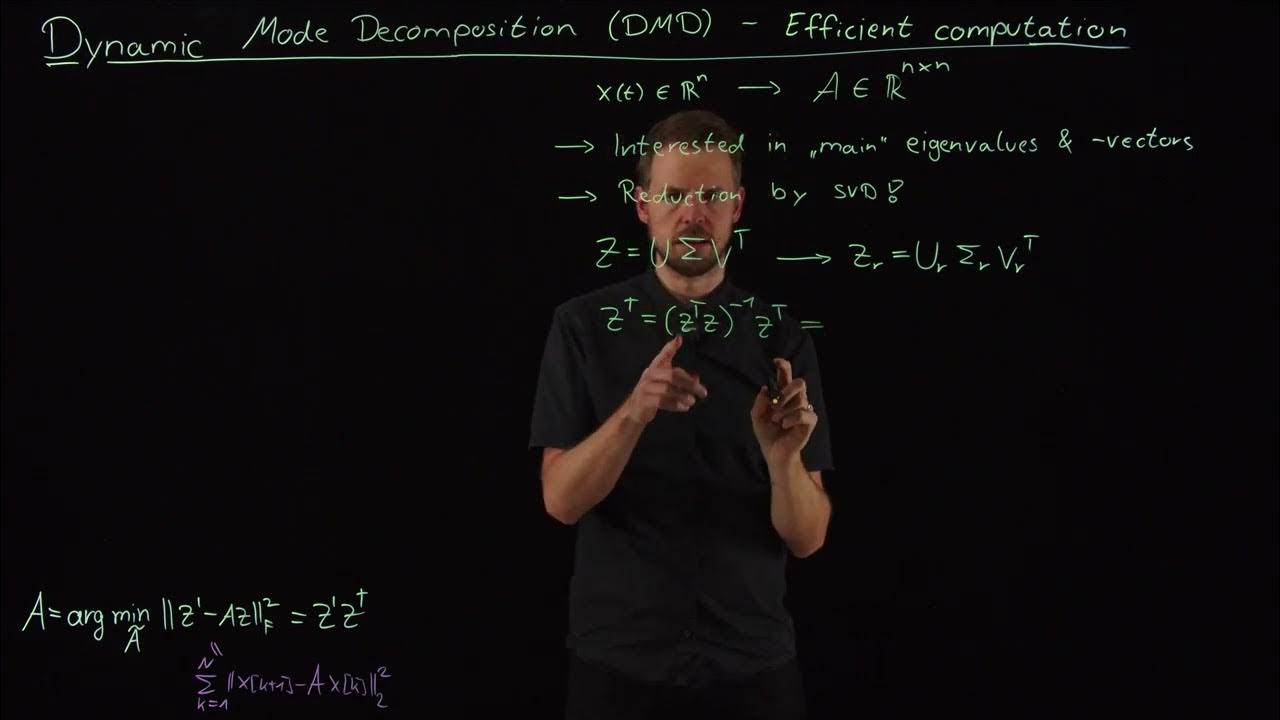 Dynamic Mode Decomposition (DMD) - Efficient computation
x(t) ∈ ℝⁿ → A ∈ ℝⁿˣⁿ
→ Interested in „main" eigenvalues & -vectors
→ Reduction by SVD!
Z = U Σ Vᵀ → Zᵣ = Uᵣ Σᵣ Vᵣᵀ
Z† = (ZᵀZ)⁻¹ Zᵀ =
A = arg min_Ã ‖Z' - AZ‖²_F = Z'Z†
Σ_{k=1}^{N} ‖x[k+1] - A x[k]‖₂²